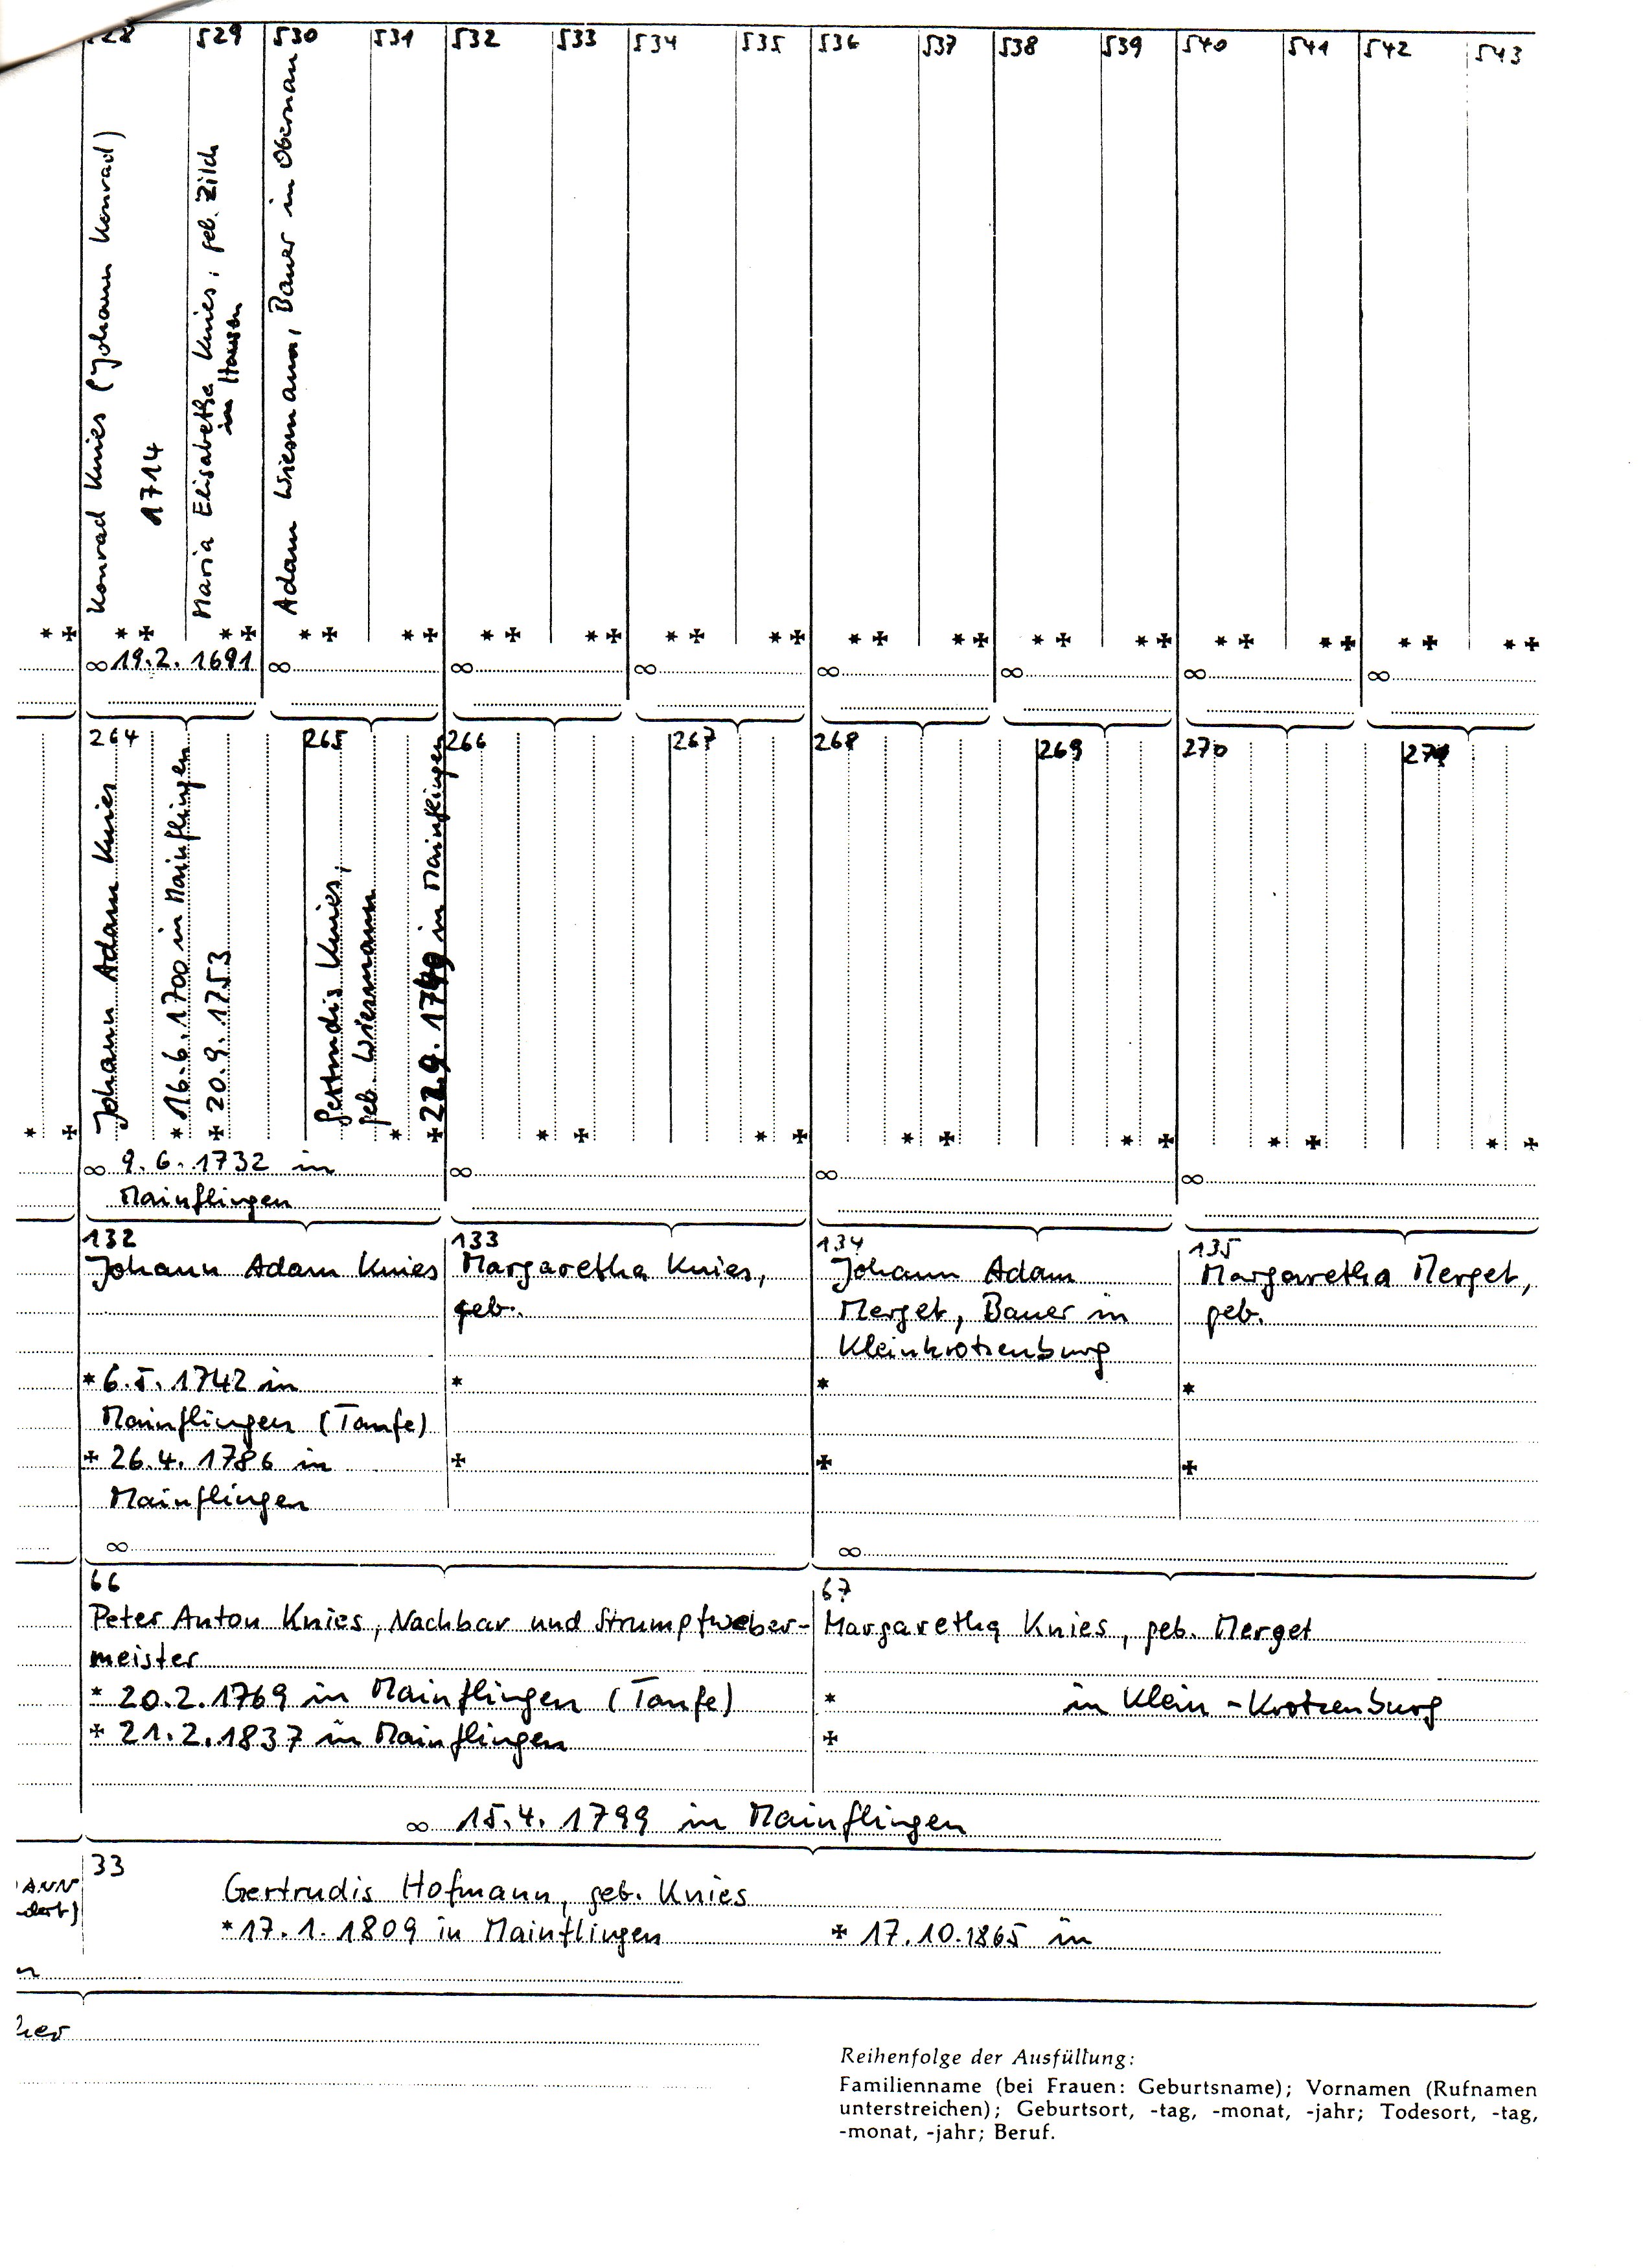 528 529 530 531 532 533 534 535 536 537 538 539 540 541 542 543
Konrad Knies (Johann Konrad)
1714
Maria Elisabetha Knies, geb. Zilch
in Hausen
Adam Wiesmann, Bauer in Obernau
* ✠ * ✠ * ✠ * ✠ * ✠ * ✠ * ✠ * ✠ * ✠ * ✠ * ✠ * ✠ * ✠ * ✠ * ✠ * ✠ * ✠
∞ 19.2. 1691 ∞ ∞ ∞ ∞ ∞ ∞ ∞
264 265 266 267 268 269 270 271
Johann Adam Knies
* 16.6.1700 in Mainflingen
✠ 20.9.1753
Gertrudis Knies,
geb. Wiesmann
✠ in Mainflingen
* ✠ * * ✠ * ✠ * ✠ * ✠ * ✠ * ✠
∞ 9.6.1732 in ∞ ∞ ∞
Mainflingen
132
Johann Adam Knies
* 6.5.1742 in
Mainflingen (Taufe)
✠ 26.4.1786 in
Mainflingen
∞
133
Margaretha Knies,
geb.
*
✠
134
Johann Adam
Merget, Bauer in
Kleinkrotzenburg
*
✠
∞
135
Margaretha Merget,
geb.
*
✠
66
Peter Anton Knies, Nachbar und Strumpfweber-
meister
* 20.2.1769 in Mainflingen (Taufe)
✠ 21.2.1837 in Mainflingen
67
Margaretha Knies, geb. Merget
* in Klein-Krotzenburg
✠
∞ 15.4.1799 in Mainflingen
33
Gertrudis Hofmann, geb. Knies
* 17.1.1809 in Mainflingen ✠ 17.10.1865 in
Reihenfolge der Ausfüllung:
Familienname (bei Frauen: Geburtsname); Vornamen (Rufnamen
unterstreichen); Geburtsort, -tag, -monat, -jahr; Todesort, -tag,
-monat, -jahr; Beruf.